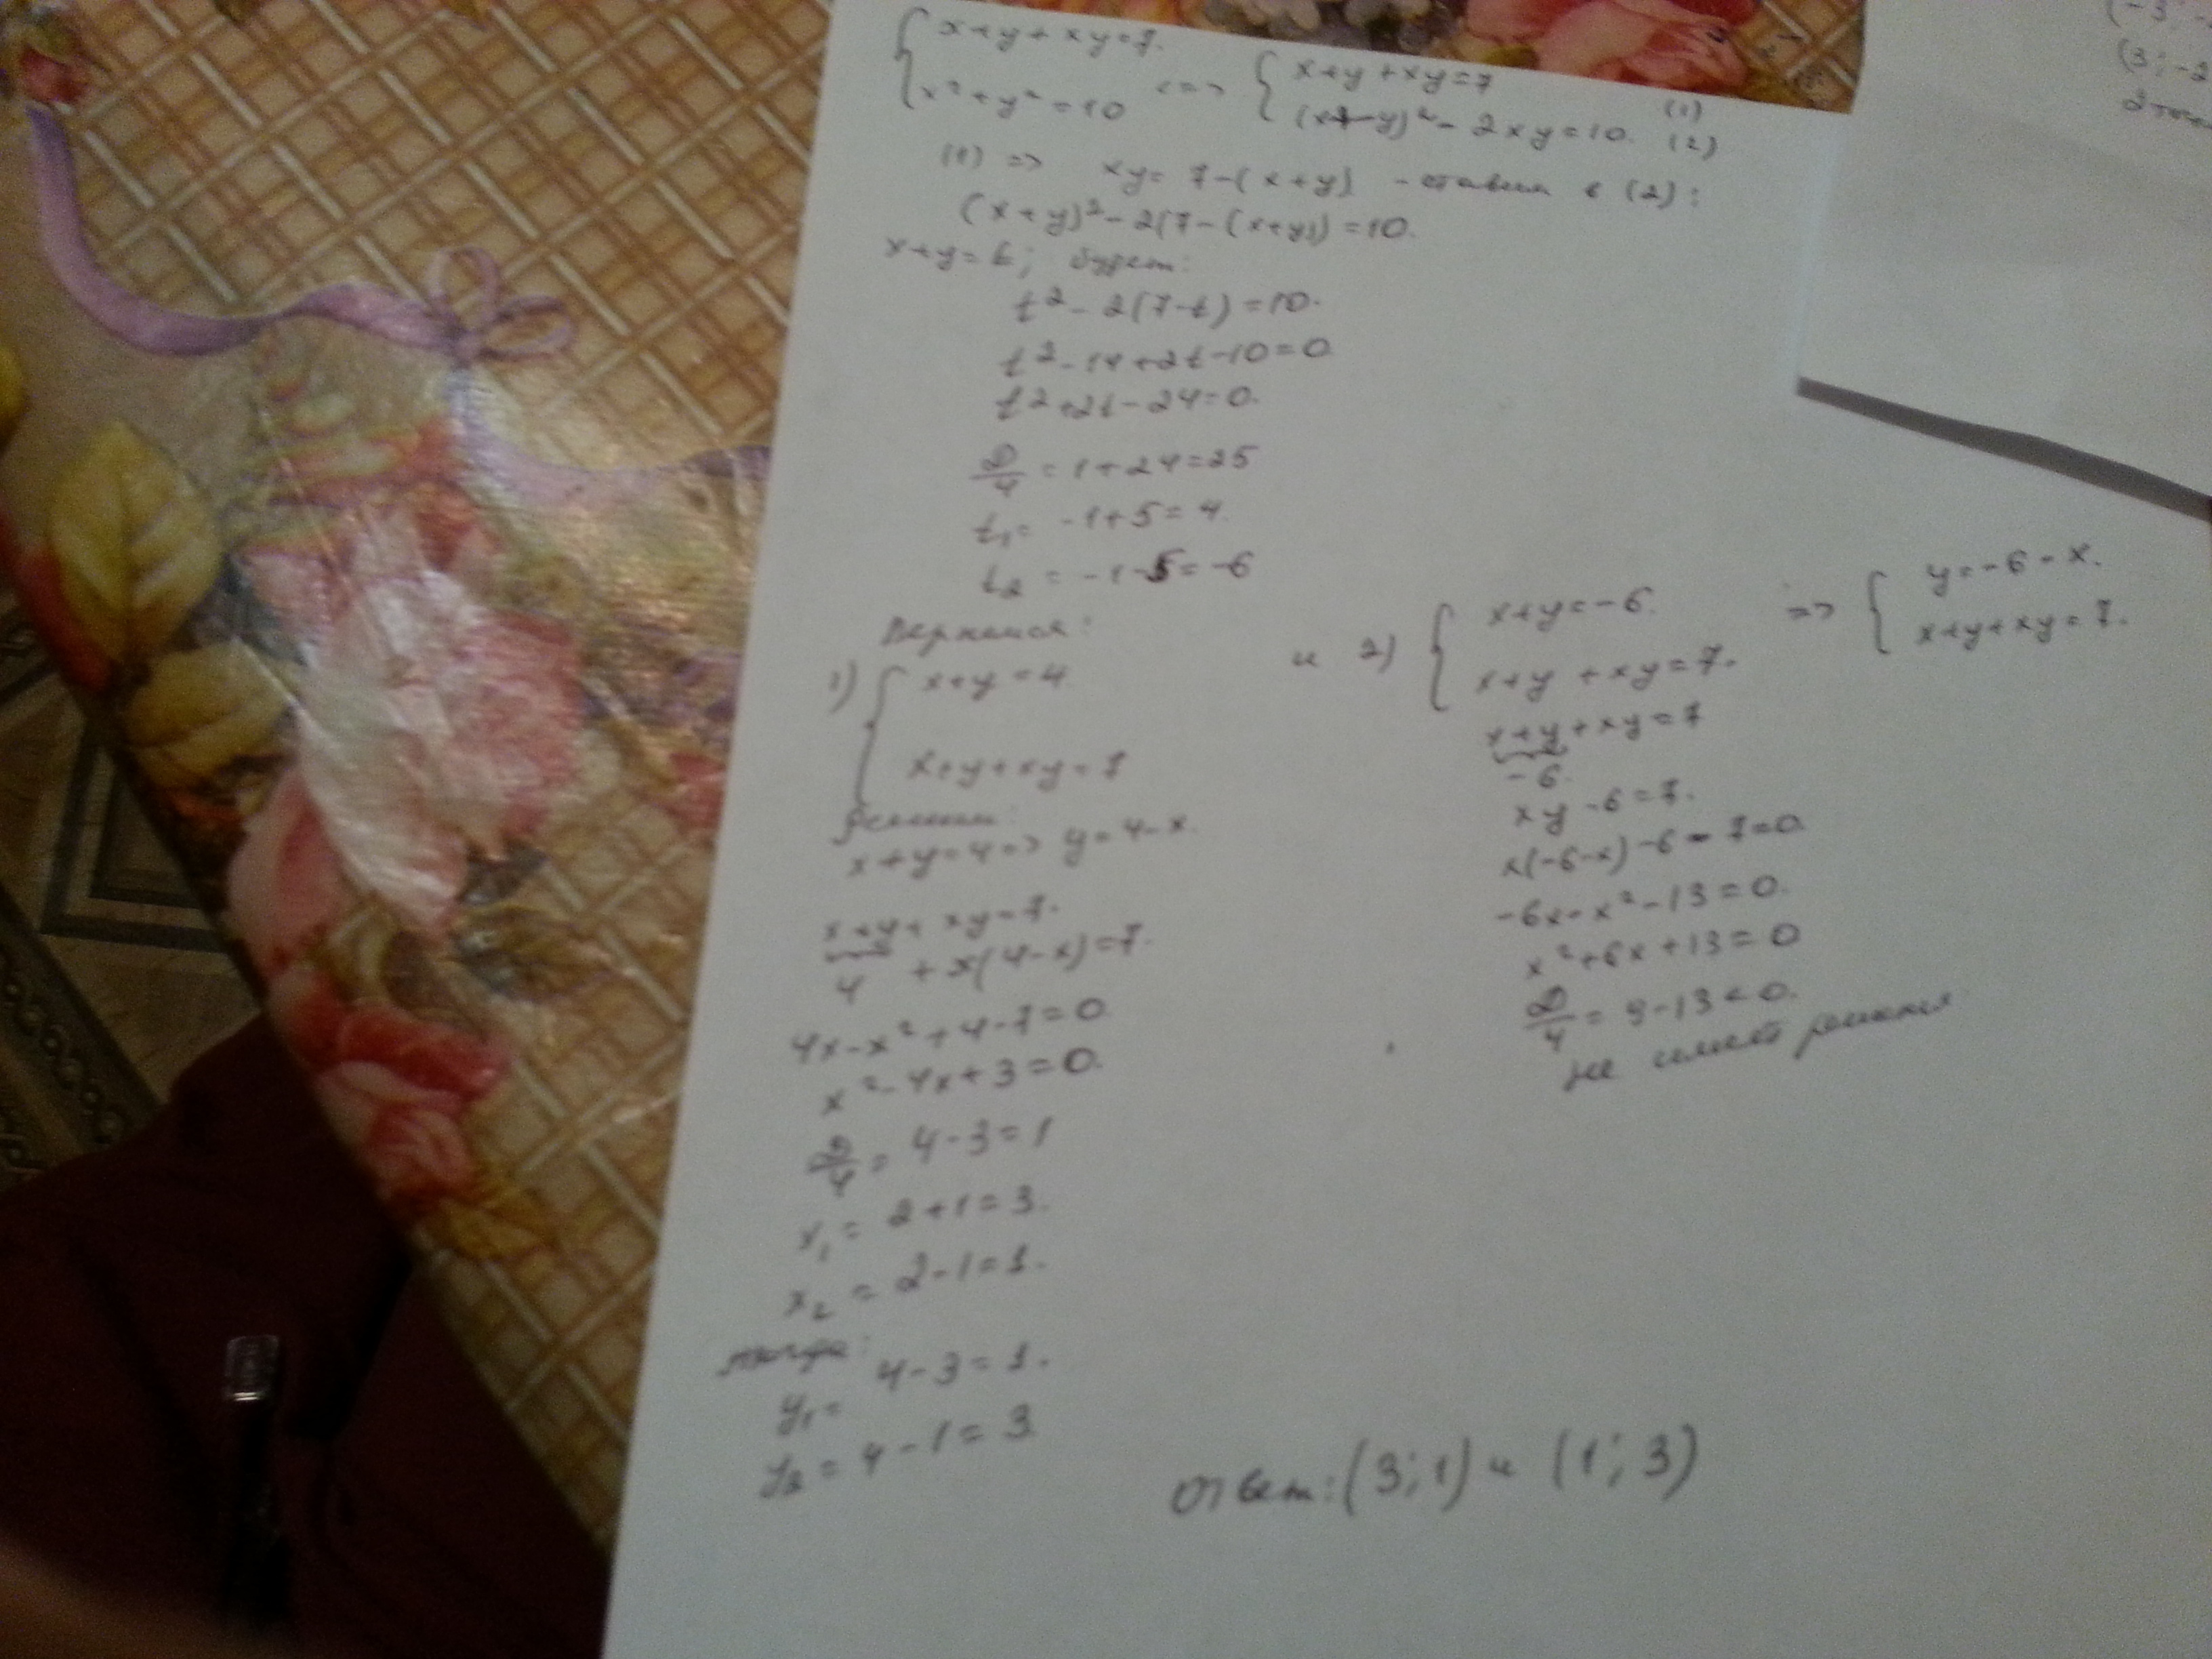 { x+y+xy=7. <=> { x+y+xy=7 (1)
{ x²+y²=10 { (x+y)²-2xy=10. (2)
(1) => xy=7-(x+y) - ставим в (2):
(x+y)²-2(7-(x+y))=10.
x+y=t; будет:
t²-2(7-t)=10.
t²-14+2t-10=0
t²+2t-24=0.
D/4=1+24=25
t₁=-1+5=4.
t₂=-1-5=-6
Вернемся:
1) { x+y=4
{ x+y+xy=7
Решим:
x+y=4=> y=4-x.
x+y+xy=7.
4 +x(4-x)=7.
4x-x²+4-7=0
x²-4x+3=0.
D/4=4-3=1
x₁=2+1=3.
x₂=2-1=1.
тогда:
y₁=4-3=1.
y₂=4-1=3
и 2) { x+y=-6. => { y=-6-x.
{ x+y+xy=7. { x+y+xy=7.
x+y+xy=7
-6.
xy-6=7.
x(-6-x)-6-7=0
-6x-x²-13=0.
x²+6x+13=0
D/4=9-13<0.
не имеет решения
Ответ: (3;1) и (1;3)
(3;-2